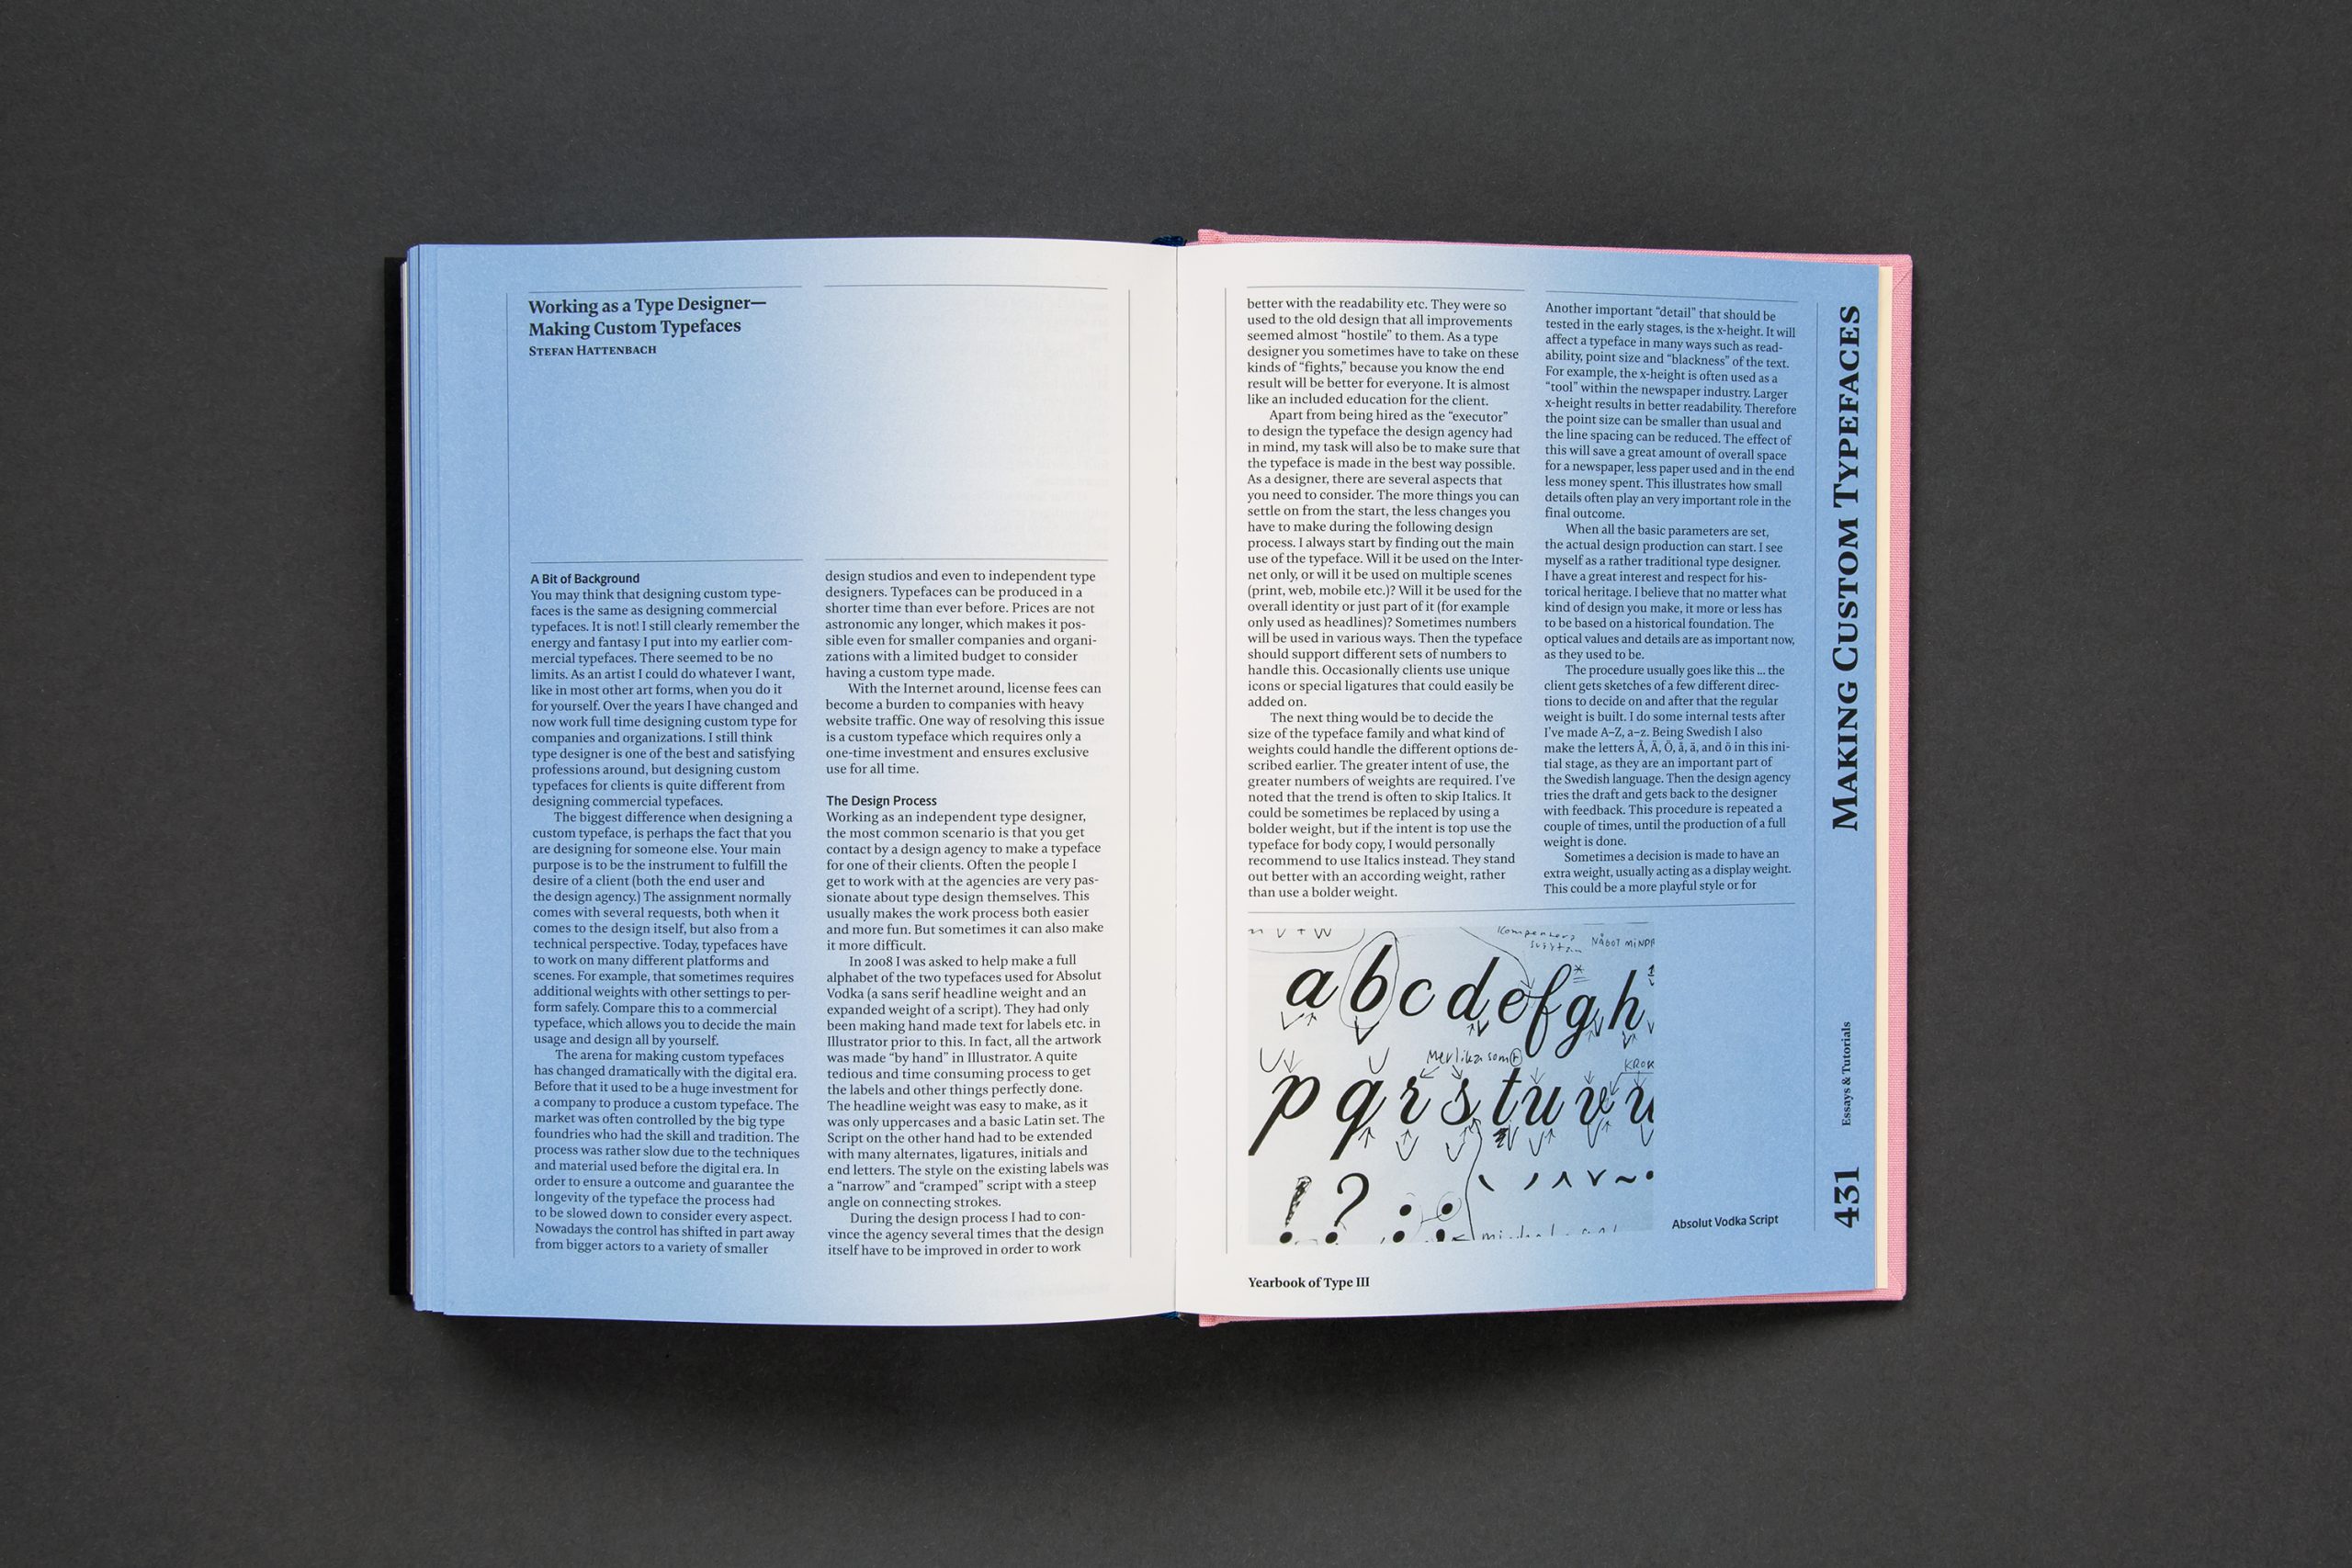 Working as a Type Designer—
Making Custom Typefaces
Stefan Hattenbach
A Bit of Background
You may think that designing custom type-
faces is the same as designing commercial
typefaces. It is not! I still clearly remember the
energy and fantasy I put into my earlier com-
mercial typefaces. There seemed to be no
limits. As an artist I could do whatever I want,
like in most other art forms, when you do it
for yourself. Over the years I have changed and
now work full time designing custom type for
companies and organizations. I still think
type designer is one of the best and satisfying
professions around, but designing custom
typefaces for clients is quite different from
designing commercial typefaces.
The biggest difference when designing a
custom typeface, is perhaps the fact that you
are designing for someone else. Your main
purpose is to be the instrument to fulfill the
desire of a client (both the end user and
the design agency.) The assignment normally
comes with several requests, both when it
comes to the design itself, but also from a
technical perspective. Today, typefaces have
to work on many different platforms and
scenes. For example, that sometimes requires
additional weights with other settings to per-
form safely. Compare this to a commercial
typeface, which allows you to decide the main
usage and design all by yourself.
The arena for making custom typefaces
has changed dramatically with the digital era.
Before that it used to be a huge investment for
a company to produce a custom typeface. The
market was often controlled by the big type
foundries who had the skill and tradition. The
process was rather slow due to the techniques
and material used before the digital era. In
order to ensure a outcome and guarantee the
longevity of the typeface the process had
to be slowed down to consider every aspect.
Nowadays the control has shifted in part away
from bigger actors to a variety of smaller
design studios and even to independent type
designers. Typefaces can be produced in a
shorter time than ever before. Prices are not
astronomic any longer, which makes it pos-
sible even for smaller companies and organi-
zations with a limited budget to consider
having a custom type made.
With the Internet around, license fees can
become a burden to companies with heavy
website traffic. One way of resolving this issue
is a custom typeface which requires only a
one-time investment and ensures exclusive
use for all time.
The Design Process
Working as an independent type designer,
the most common scenario is that you get
contact by a design agency to make a typeface
for one of their clients. Often the people I
get to work with at the agencies are very pas-
sionate about type design themselves. This
usually makes the work process both easier
and more fun. But sometimes it can also make
it more difficult.
In 2008 I was asked to help make a full
alphabet of the two typefaces used for Absolut
Vodka (a sans serif headline weight and an
expanded weight of a script). They had only
been making hand made text for labels etc. in
Illustrator prior to this. In fact, all the artwork
was made “by hand” in Illustrator. A quite
tedious and time consuming process to get
the labels and other things perfectly done.
The headline weight was easy to make, as it
was only uppercases and a basic Latin set. The
Script on the other hand had to be extended
with many alternates, ligatures, initials and
end letters. The style on the existing labels was
a “narrow” and “cramped” script with a steep
angle on connecting strokes.
During the design process I had to con-
vince the agency several times that the design
itself have to be improved in order to work
better with the readability etc. They were so
used to the old design that all improvements
seemed almost “hostile” to them. As a type
designer you sometimes have to take on these
kinds of “fights,” because you know the end
result will be better for everyone. It is almost
like an included education for the client.
Apart from being hired as the “executor”
to design the typeface the design agency had
in mind, my task will also be to make sure that
the typeface is made in the best way possible.
As a designer, there are several aspects that
you need to consider. The more things you can
settle on from the start, the less changes you
have to make during the following design
process. I always start by finding out the main
use of the typeface. Will it be used on the Inter-
net only, or will it be used on multiple scenes
(print, web, mobile etc.)? Will it be used for the
overall identity or just part of it (for example
only used as headlines)? Sometimes numbers
will be used in various ways. Then the typeface
should support different sets of numbers to
handle this. Occasionally clients use unique
icons or special ligatures that could easily be
added on.
The next thing would be to decide the
size of the typeface family and what kind of
weights could handle the different options de-
scribed earlier. The greater intent of use, the
greater numbers of weights are required. I’ve
noted that the trend is often to skip Italics. It
could be sometimes be replaced by using a
bolder weight, but if the intent is top use the
typeface for body copy, I would personally
recommend to use Italics instead. They stand
out better with an according weight, rather
than use a bolder weight.
Another important “detail” that should be
tested in the early stages, is the x-height. It will
affect a typeface in many ways such as read-
ability, point size and “blackness” of the text.
For example, the x-height is often used as a
“tool” within the newspaper industry. Larger
x-height results in better readability. Therefore
the point size can be smaller than usual and
the line spacing can be reduced. The effect of
this will save a great amount of overall space
for a newspaper, less paper used and in the end
less money spent. This illustrates how small
details often play an very important role in the
final outcome.
When all the basic parameters are set,
the actual design production can start. I see
myself as a rather traditional type designer.
I have a great interest and respect for his-
torical heritage. I believe that no matter what
kind of design you make, it more or less has
to be based on a historical foundation. The
optical values and details are as important now,
as they used to be.
The procedure usually goes like this ... the
client gets sketches of a few different direc-
tions to decide on and after that the regular
weight is built. I do some internal tests after
I’ve made A–Z, a–z. Being Swedish I also
make the letters Å, Ä, Ö, å, ä, and ö in this ini-
tial stage, as they are an important part of
the Swedish language. Then the design agency
tries the draft and gets back to the designer
with feedback. This procedure is repeated a
couple of times, until the production of a full
weight is done.
Sometimes a decision is made to have an
extra weight, usually acting as a display weight.
This could be a more playful style or for
NÅGOT MINDR
a b c d e f g h
Mer lika som
KROK
p q r s t u v
! ? : :
Absolut Vodka Script
Yearbook of Type III
Making Custom Typefaces
Essays & Tutorials
431